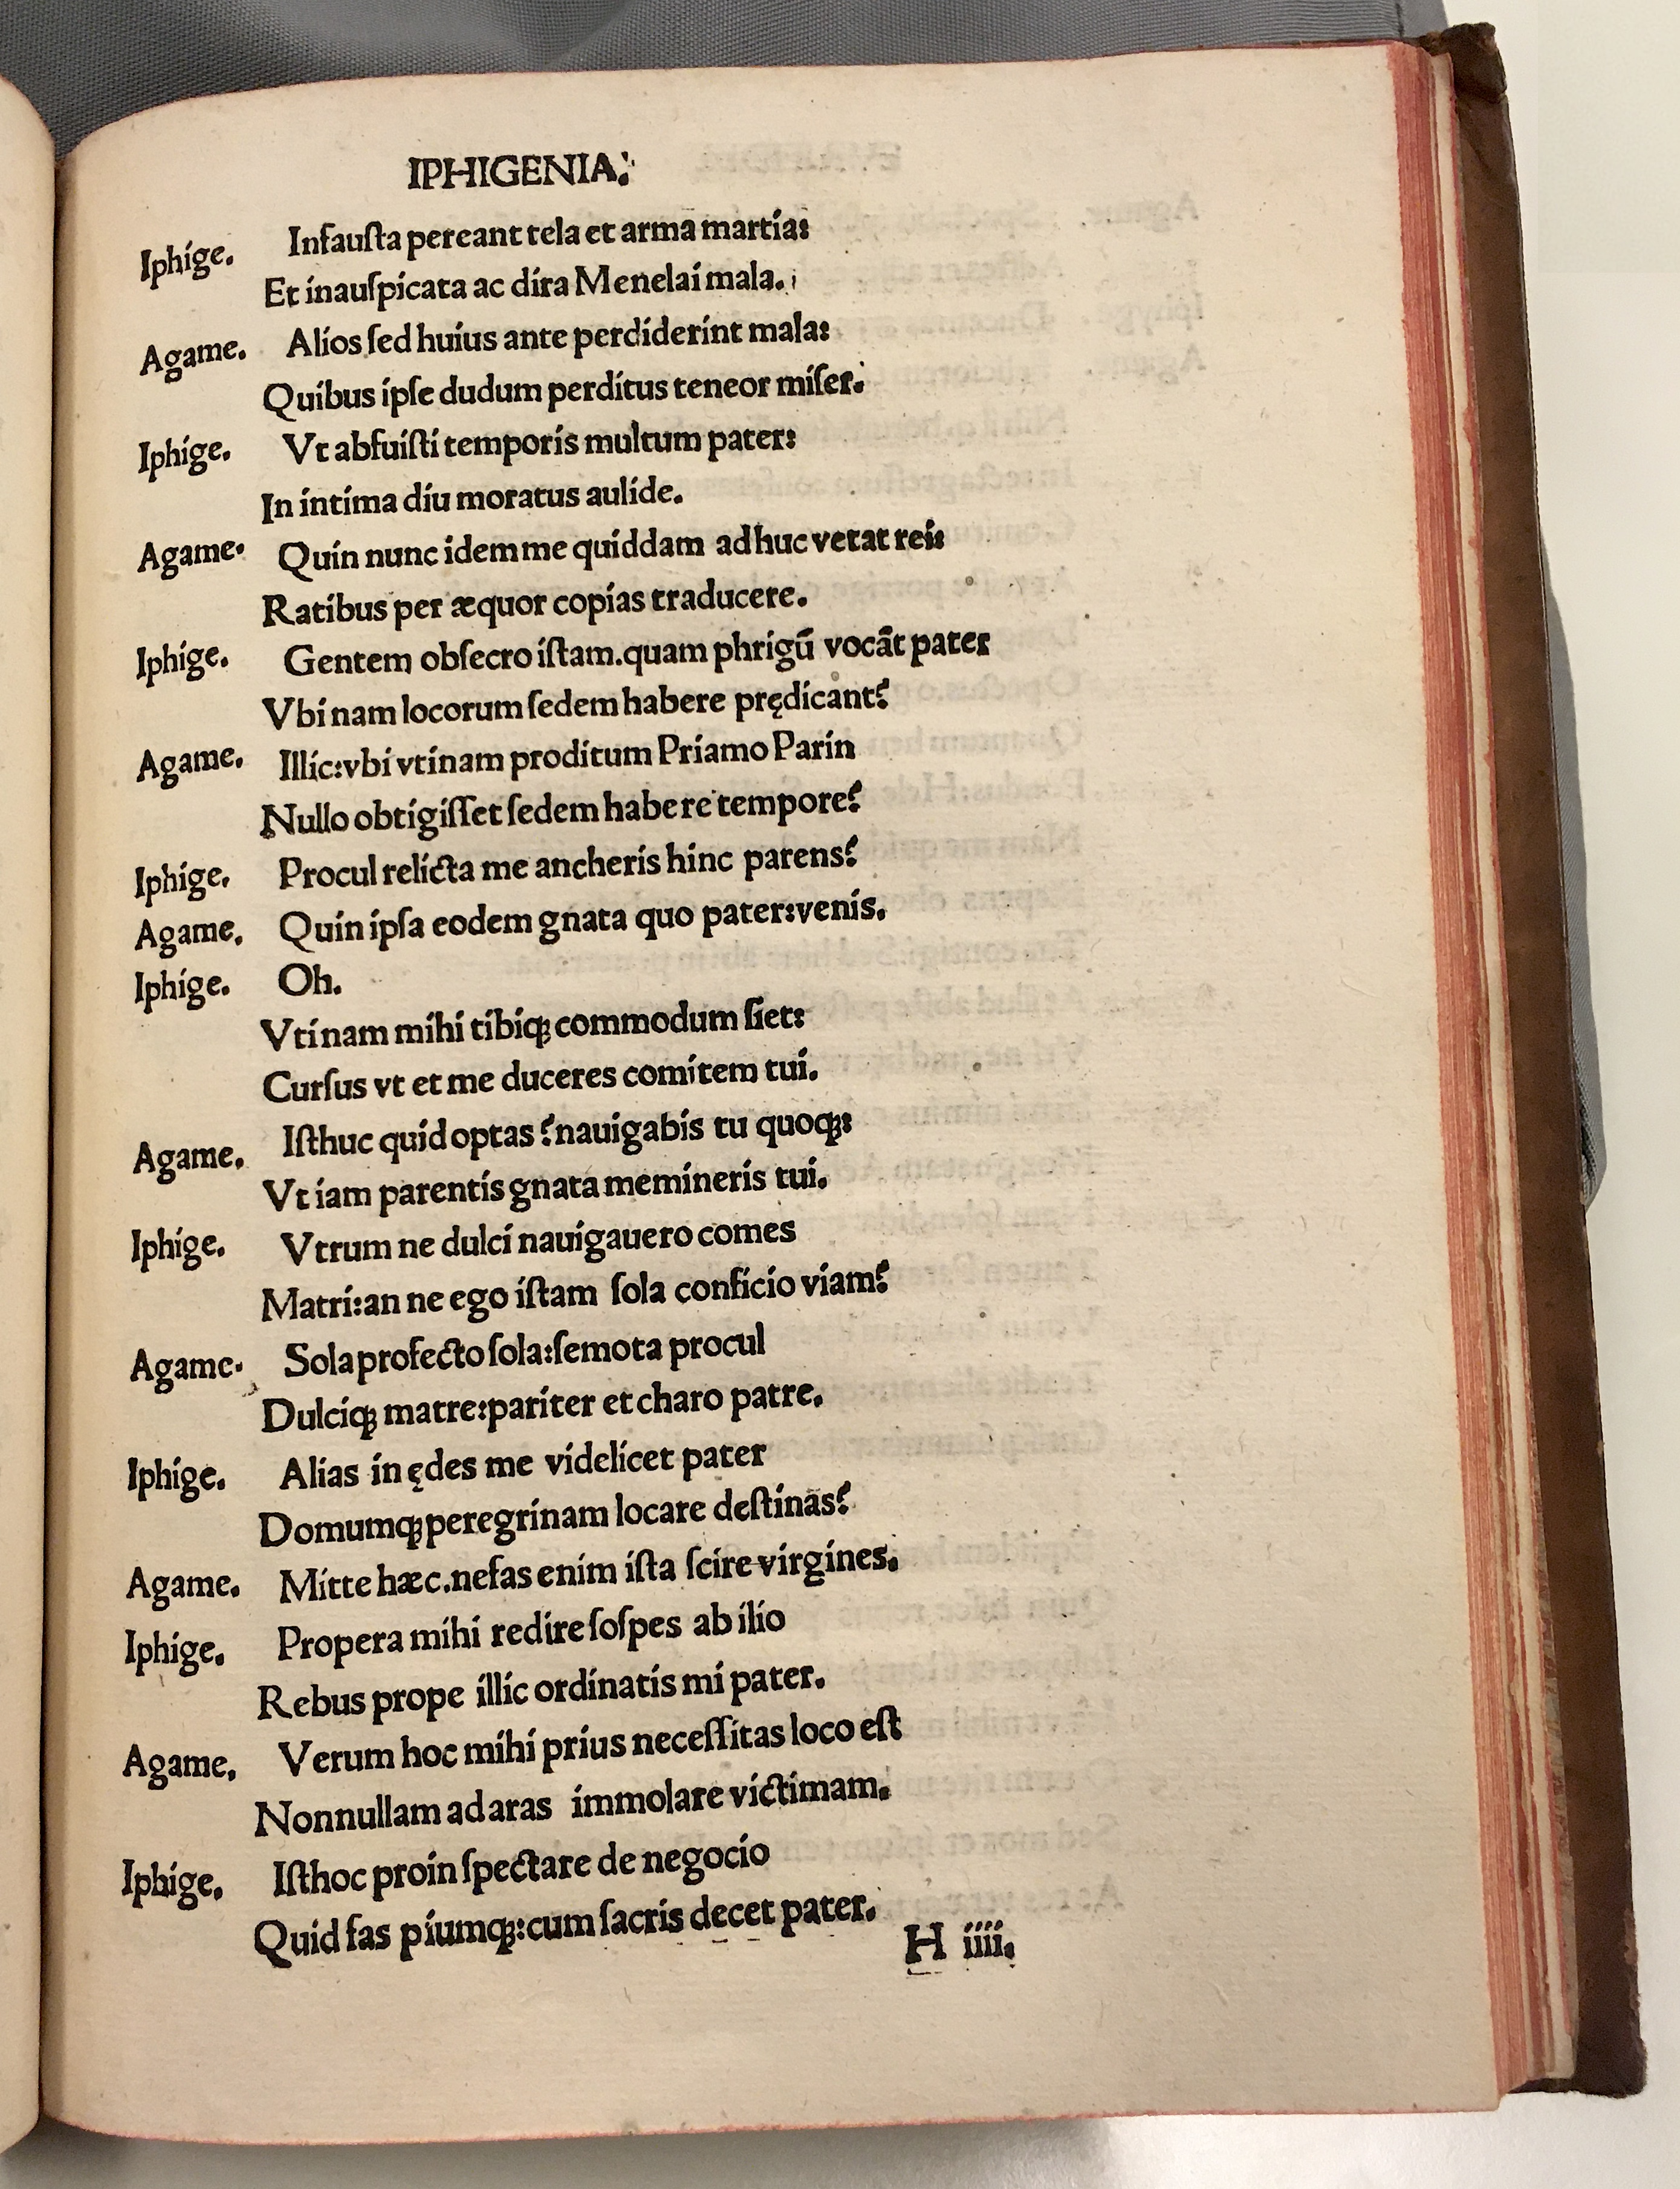 IPHIGENIA.
Iphige. Infauſta pereant tela et arma martia:
Et inauſpicata ac dira Menelai mala.
Agame. Alios ſed huius ante perdiderint mala:
Quibus ipſe dudum perditus teneor miſer.
Iphige. Vt abfuiſti temporis multum pater:
In intima diu moratus aulide.
Agame. Quin nunc idem me quiddam adhuc vetat rei:
Ratibus per æquor copias traducere.
Iphige. Gentem obſecro iſtam.quam phrigū vocāt pater
Vbi nam locorum ſedem habere prędicant?
Agame. Illic:vbi vtinam proditum Priamo Parin
Nullo obtigiſſet ſedem habere tempore?
Iphige. Procul relicta me ancheris hinc parens?
Agame. Quin ipſa eodem gnata quo pater:venis.
Iphige. Oh.
Vtinam mihi tibiqꝫ commodum ſiet:
Curſus vt et me duceres comitem tui.
Agame. Iſthuc quid optas?nauigabis tu quoqꝫ:
Vt iam parentis gnata memineris tui.
Iphige. Vtrum ne dulci nauigauero comes
Matri:an ne ego iſtam ſola conficio viam?
Agame. Sola profecto ſola:ſemota procul
Dulciqꝫ matre:pariter et charo patre.
Iphige. Alias in ędes me videlicet pater
Domumqꝫ peregrinam locare deſtinas?
Agame. Mitte hæc.nefas enim iſta ſcire virgines.
Iphige. Propera mihi redire ſoſpes ab ilio
Rebus prope illic ordinatis mi pater.
Agame. Verum hoc mihi prius neceſſitas loco eſt
Nonnullam ad aras immolare victimam.
Iphige. Iſthoc proin ſpectare de negocio
Quid fas piumqꝫ:cum ſacris decet pater.
H iiii.